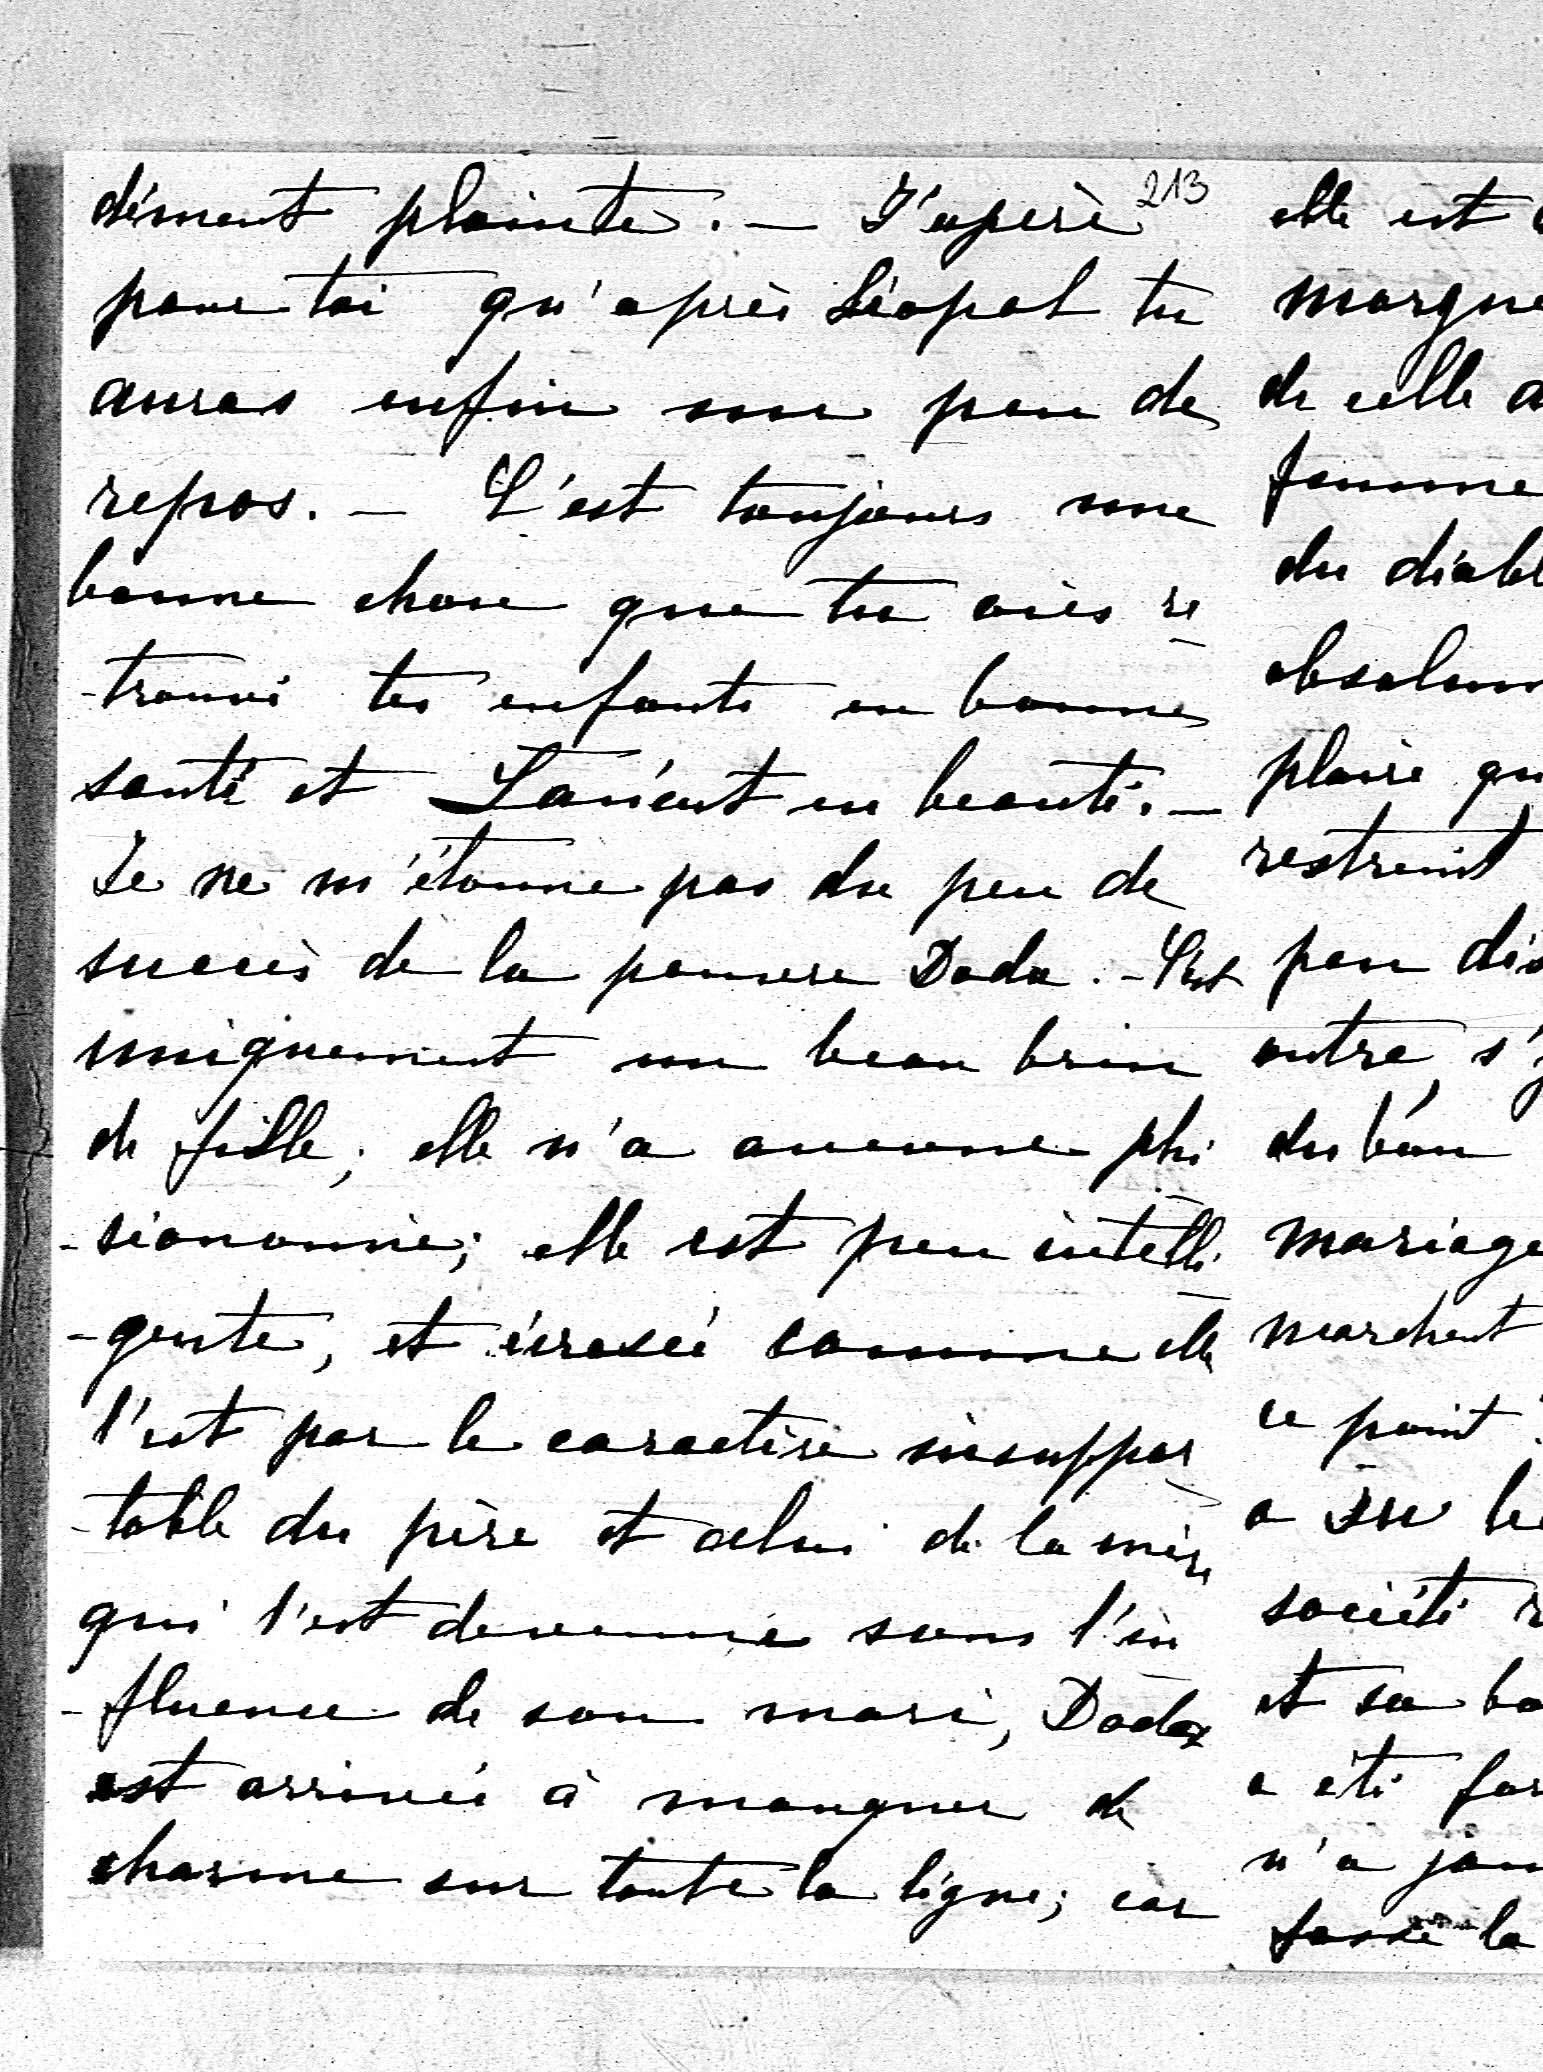 213
démment plainte. — J'espère
pour toi qu'après Léopol tu
auras enfin un peu de
repos. — C'est toujours une
bonne chose que tu aies re
-trouvé tes enfants en bonne
santé et en beauté. —
Je ne m'étonne pas du peu de
succès de la pauvre Doda. - C'est
uniquement un beau brin
de fille; elle n'a aucune phi
-sionomie; elle est peu intelli
-gente, et écrasée comme elle
l'est par le caractère insuppor
-table du père et celui de la mère
qui l'est devenue sous l'in
-fluence de son mari, Doda
est arrivée à manquer de
charme sur toute la ligne; car
elle est
morgue
de celle a
femme
du diabl
absolum
plaire qu
restreint
peu dis
outre, s'y
du bon
mariage
marchent
ce point
a
société r
et sa bo
a été for
n'a jam
fasse la